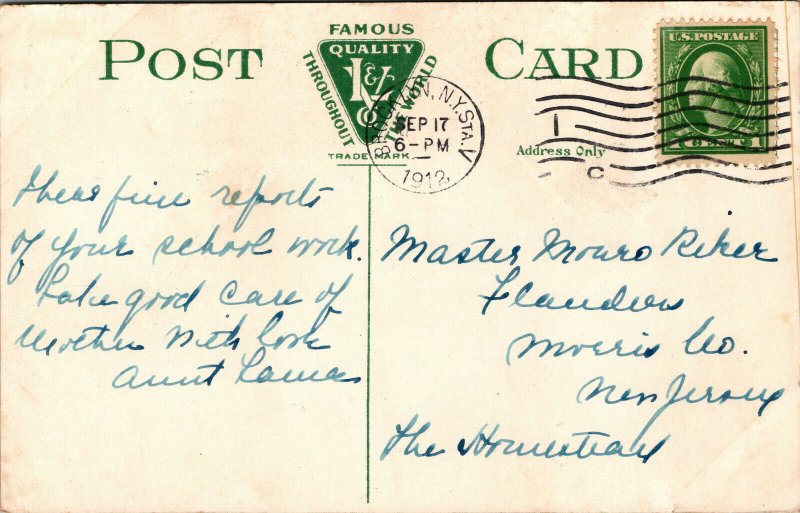 POST CARD
FAMOUS
QUALITY
THROUGHOUT
THE WORLD
I & Co
TRADE MARK
BROOKLYN, N.Y. STA. V
SEP 17
6-PM
1912
1
C
U.S. POSTAGE
1 CENT 1
Address Only
I hear fine reports
of your school work.
Take good care of
Mother With love
Aunt
Master Monro Riker
Flanders
Morris Co.
New Jersey
The Homestead